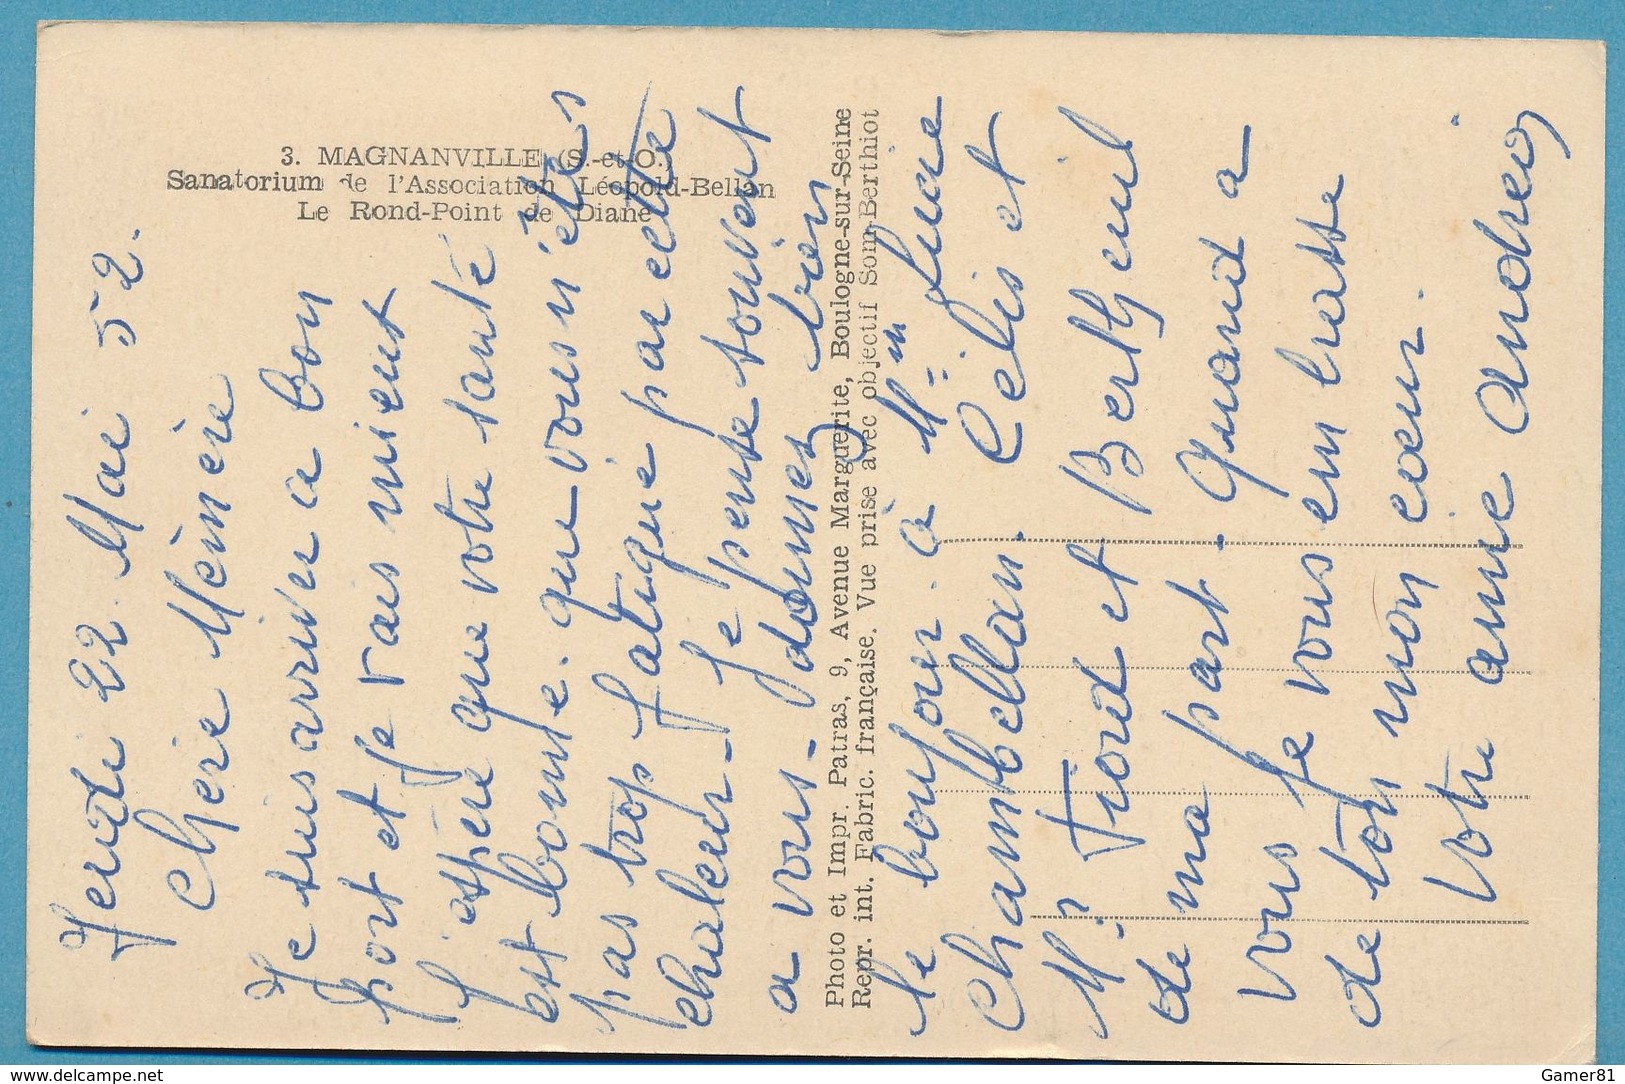 3. MAGNANVILLE (S.-et-O.)
Sanatorium de l'Association Léopold-Bellan
Le Rond-Point de Diane
Jeudi 22 Mai 52.
Chère Mémère
Je suis arrivée a bon
port et je vais mieux
J'espère que votre santé
est bonne. que vous n'êtes
pas trop fatigué par cette
chaleur. Je pense souvent
a vous. donnez bien
le bonjour à Mme Lucie
Chambellan. Célis et
Mr Fiord et Bertheuil
de ma part. Quand a
vous je vous embrasse
de tous mon cœur.
Votre amie Andrée
Photo et Impr. Patras, 9, Avenue Marguerite, Boulogne-sur-Seine
Repr. int. Fabric. française. Vue prise avec objectif Som-Berthiot
delcampe.net
Gamer81